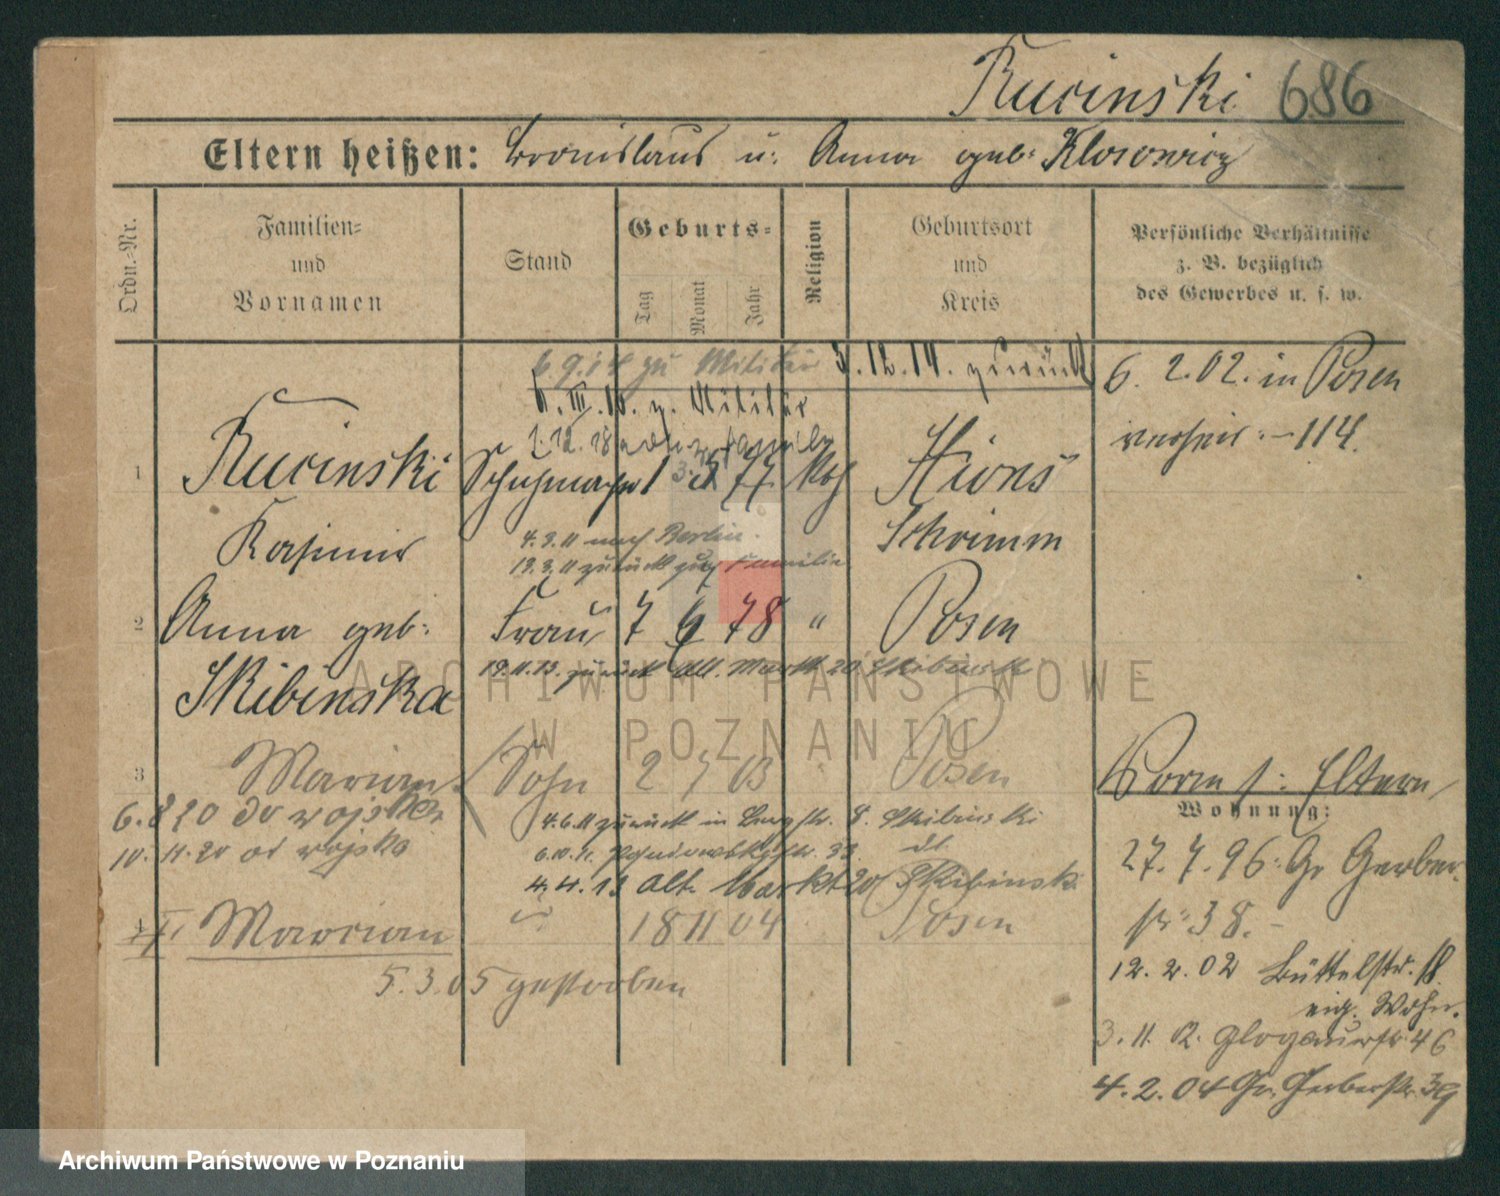 Rucinski 686
Eltern heißen: Bronislaus u. Anna geb. Klosowicz
Ordn.-Nr.
Familien- und Vornamen
Stand
Geburts-
Tag
Monat
Jahr
Religion
Geburtsort und Kreis
Persönliche Verhältnisse
z. B. bezüglich
des Gewerbes u. s. w.
6.9.14 zu Militär 3.12.14. zurück
z. Militär
6. 2.02. in Posen
verheir. - 114.
1 Rucinski Schuhmacher 1 3 77 kath Xions
Kasimir Schrimm
4.3.11 nach Berlin.
19.3.11 zurück zur Familie
2 Anna geb. Frau 7 6 78 " Posen
Skibinska
19.11.13. zurück Alt. Markt 20 Skibinski
3 Marian Sohn 2 7 03 Posen
6.8 20 do wojska
10.11.20 od wojska
4.6.11 zurück in 8. Skibinski
6.10.11. 33
4.4.13 Alt. Markt 20 Skibinski
Marcian 18 11 04 Posen
5.3.05 gestorben
Vorm s: Eltern
Wohnung:
27.7.96. Gr Gerber-
str. 38.-
12.2.02 Büttelstr. 18.
eig. Wohn.
3.11.02. Glogauerstr. 46
4.2.04 Gr. Gerberstr. 39
ARCHIWUM PAŃSTWOWE
W POZNANIU
Archiwum Państwowe w Poznaniu